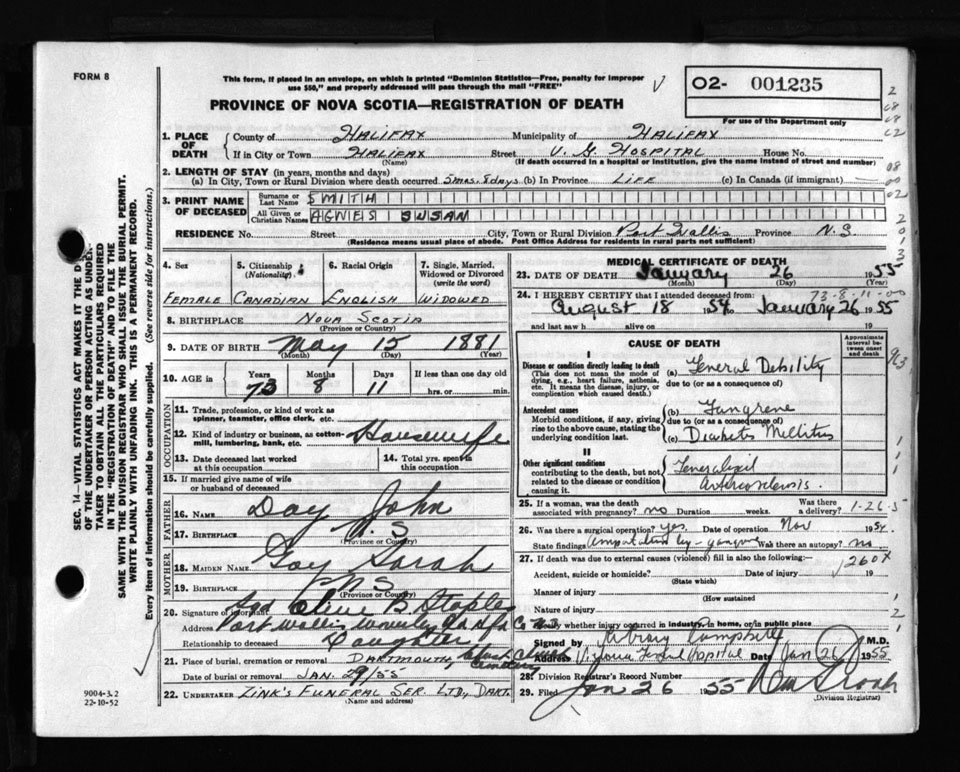 FORM 8
This form, if placed in an envelope, on which is printed "Dominion Statistics—Free, penalty for improper
use $50," and properly addressed will pass through the mail "FREE"
O2- 001235
For use of the Department only
PROVINCE OF NOVA SCOTIA—REGISTRATION OF DEATH
1. PLACE OF DEATH County of HALIFAX Municipality of HALIFAX
If in City or Town HALIFAX Street V. G. HOSPITAL House No.
(Name) (If death occurred in a hospital or institution, give the name instead of street and number)
2. LENGTH OF STAY (in years, months and days)
(a) In City, Town or Rural Division where death occurred 5 mos. 8 days (b) In Province LIFE (c) In Canada (if immigrant)
3. PRINT NAME OF DECEASED Surname or Last Name SMITH
All Given or Christian Names AGNES SUSAN
RESIDENCE No. Street City, Town or Rural Division Port Wallis Province N.S.
(Residence means usual place of abode. Post Office Address for residents in rural parts not sufficient)
4. Sex 5. Citizenship (Nationality) 6. Racial Origin 7. Single, Married, Widowed or Divorced (write the word)
FEMALE CANADIAN ENGLISH WIDOWED
8. BIRTHPLACE NOVA SCOTIA
(Province or Country)
9. DATE OF BIRTH May 15 1881
(Month) (Day) (Year)
10. AGE in Years Months Days If less than one day old
73 8 11 hrs. or min.
OCCUPATION
11. Trade, profession, or kind of work as
spinner, teamster, office clerk, etc.
12. Kind of industry or business, as cotton-
mill, lumbering, bank, etc. Housewife
13. Date deceased last worked
at this occupation
14. Total yrs. spent in
this occupation
15. If married give name of wife
or husband of deceased
FATHER
16. NAME Day John
17. BIRTHPLACE N S
(Province or Country)
MOTHER
18. MAIDEN NAME Gay Sarah
19. BIRTHPLACE N S
(Province or Country)
20. Signature of informant Olive B. Staples
Address Port Wallis Waverley
Relationship to deceased Daughter
21. Place of burial, cremation or removal DARTMOUTH,
Date of burial or removal JAN. 29/55
22. UNDERTAKER ZINK'S FUNERAL SER. LTD., DART.
(Name and address)
MEDICAL CERTIFICATE OF DEATH
23. DATE OF DEATH January 26 1955
(Month) (Day)
24. I HEREBY CERTIFY that I attended deceased from: 73-8-11-00
August 18 1954 to January 26 1955
and last saw h alive on 19
CAUSE OF DEATH
Approximate interval between onset and death
I
Disease or condition directly leading to death
(This does not mean the mode of
dying, e.g., heart failure, asthenia,
etc. It means the disease, injury, or
complication which caused death.)
(a) General Debility
due to (or as a consequence of)
Antecedent causes
Morbid conditions, if any, giving
rise to the above cause, stating the
underlying condition last.
(b) Gangrene
due to (or as a consequence of)
(c) Diabetes Mellitus
II
Other significant conditions
contributing to the death, but not
related to the disease or condition
causing it.
Generalized
Arteriosclerosis.
25. If a woman, was the death
associated with pregnancy? no Duration weeks. Was there a delivery? 1-26-5
26. Was there a surgical operation? yes. Date of operation Nov 1954.
State findings Amputation leg - gangrene Was there an autopsy? no
27. If death was due to external causes (violence) fill in also the following: 260X
Accident, suicide or homicide? Date of injury 19
(State which)
Manner of injury
(How sustained)
Nature of injury
Specify whether injury occurred in industry, in home, or in public place
Signed by M.D.
Address Victoria General Hospital Date Jan 26 1955
28. Division Registrar's Record Number
29. Filed Jan 26 1955
(Division Registrar)
SEC. 14—VITAL STATISTICS ACT MAKES IT THE
OF THE UNDERTAKER OR PERSON ACTING AS UNDER-
TAKER TO OBTAIN ALL THE PARTICULARS REQUIRED
IN THE "REGISTRATION OF DEATH" AND TO FILE THE
SAME WITH THE DIVISION REGISTRAR WHO SHALL ISSUE THE BURIAL PERMIT.
WRITE PLAINLY WITH UNFADING INK. THIS IS A PERMANENT RECORD.
Every item of information should be carefully supplied. (See reverse side for instructions.)
9004-3.2
22-10-52